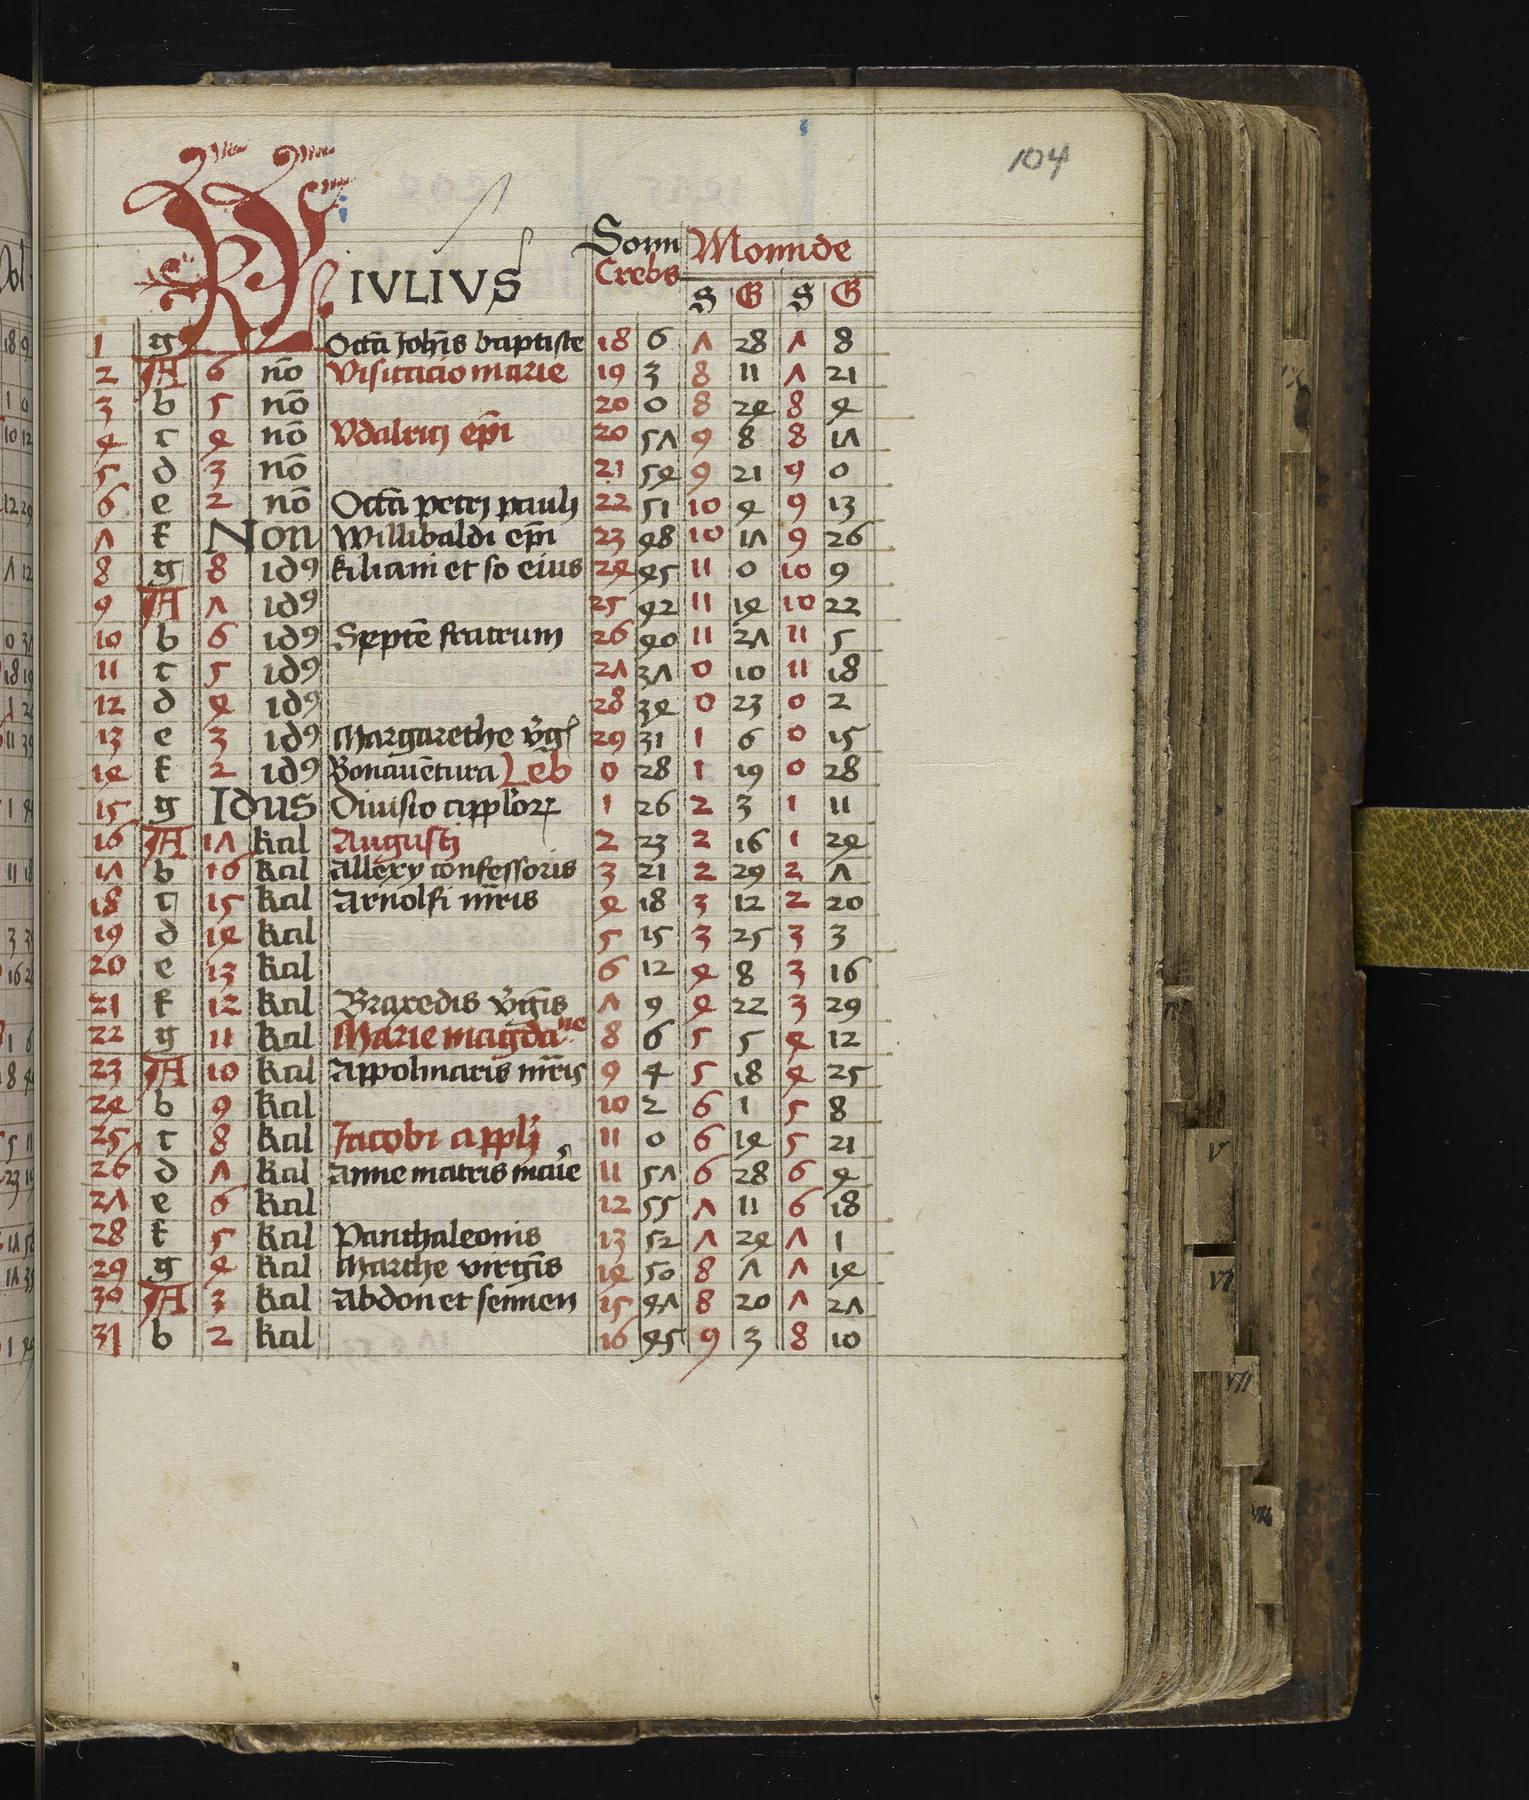 104
KL IULIUS Sonn Monnde
Crebs S G S G
1 g Octa Johis baptiste 18 6 7 28 7 8
2 A 6 no Visitacio marie 19 3 8 11 7 21
3 b 5 no 20 0 8 24 8 4
4 c 4 no Vdalrici epi 20 57 9 8 8 17
5 d 3 no 21 54 9 21 9 0
6 e 2 no Octa petri pauli 22 51 10 4 9 13
7 f Non Willibaldi epi 23 48 10 17 9 26
8 g 8 id9 kiliani et so eius 24 45 11 0 10 9
9 A 7 id9 25 42 11 14 10 22
10 b 6 id9 Septe fratrum 26 40 11 27 11 5
11 c 5 id9 27 37 0 10 11 18
12 d 4 id9 28 34 0 23 0 2
13 e 3 id9 Margarethe vgis 29 31 1 6 0 15
14 f 2 id9 Bonauetura Leb 0 28 1 19 0 28
15 g Idus Diuisio applor 1 26 2 3 1 11
16 A 17 kal Augusti 2 23 2 16 1 24
17 b 16 kal Allexy confessoris 3 21 2 29 2 7
18 c 15 kal Arnolfi mris 4 18 3 12 2 20
19 d 14 kal 5 15 3 25 3 3
20 e 13 kal 6 12 4 8 3 16
21 f 12 kal Braxedis vgis 7 9 4 22 3 29
22 g 11 kal Marie magdane 8 6 5 5 4 12
23 A 10 kal Appolinaris mris 9 4 5 18 4 25
24 b 9 kal 10 2 6 1 5 8
25 c 8 kal Jacobi appli 11 0 6 14 5 21
26 d 7 kal Anne matris marie 11 57 6 28 6 4
27 e 6 kal 12 55 7 11 6 18
28 f 5 kal Panthaleonis 13 52 7 24 7 1
29 g 4 kal Marthe virgis 14 50 8 7 7 14
30 A 3 kal Abdon et sennen 15 47 8 20 7 27
31 b 2 kal 16 45 9 3 8 10
V
VI
VII